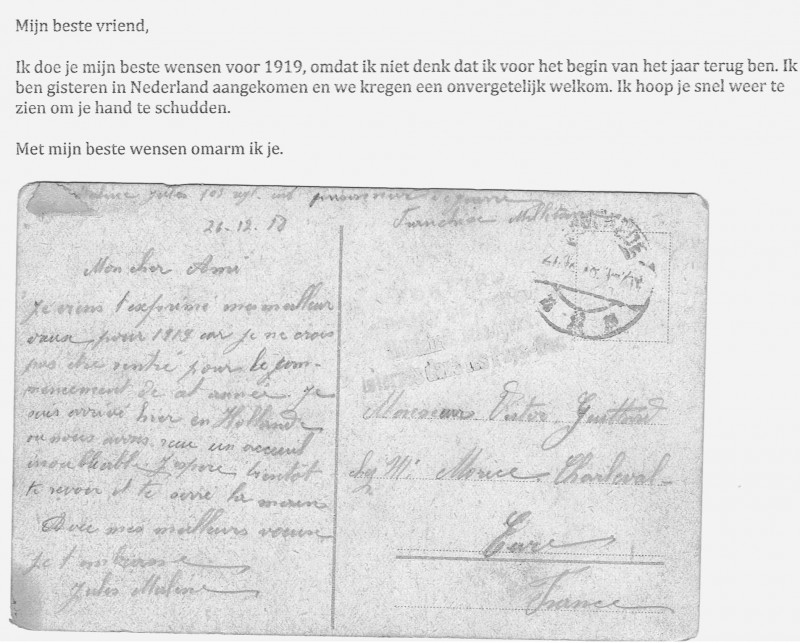 Mijn beste vriend,
Ik doe je mijn beste wensen voor 1919, omdat ik niet denk dat ik voor het begin van het jaar terug ben. Ik
ben gisteren in Nederland aangekomen en we kregen een onvergetelijk welkom. Ik hoop je snel weer te
zien om je hand te schudden.
Met mijn beste wensen omarm ik je.
Jules 103
26.12.18
Franchise Militaire
Mon cher Ami
Je viens t'exprimé mes meilleur
vœux pour 1919 car je ne crois
pas être rentré pour le com-
mencement de cet année. Je
suis arrivé hier en Hollande
ou nous avons reçu un accueil
inoubliable J'espere bientôt
te revoir et te serré la main
Avec mes meilleurs voeux
je t'embrasse
Jules
Monsieur Victor
Mr Morice Charleval-
Eure
France